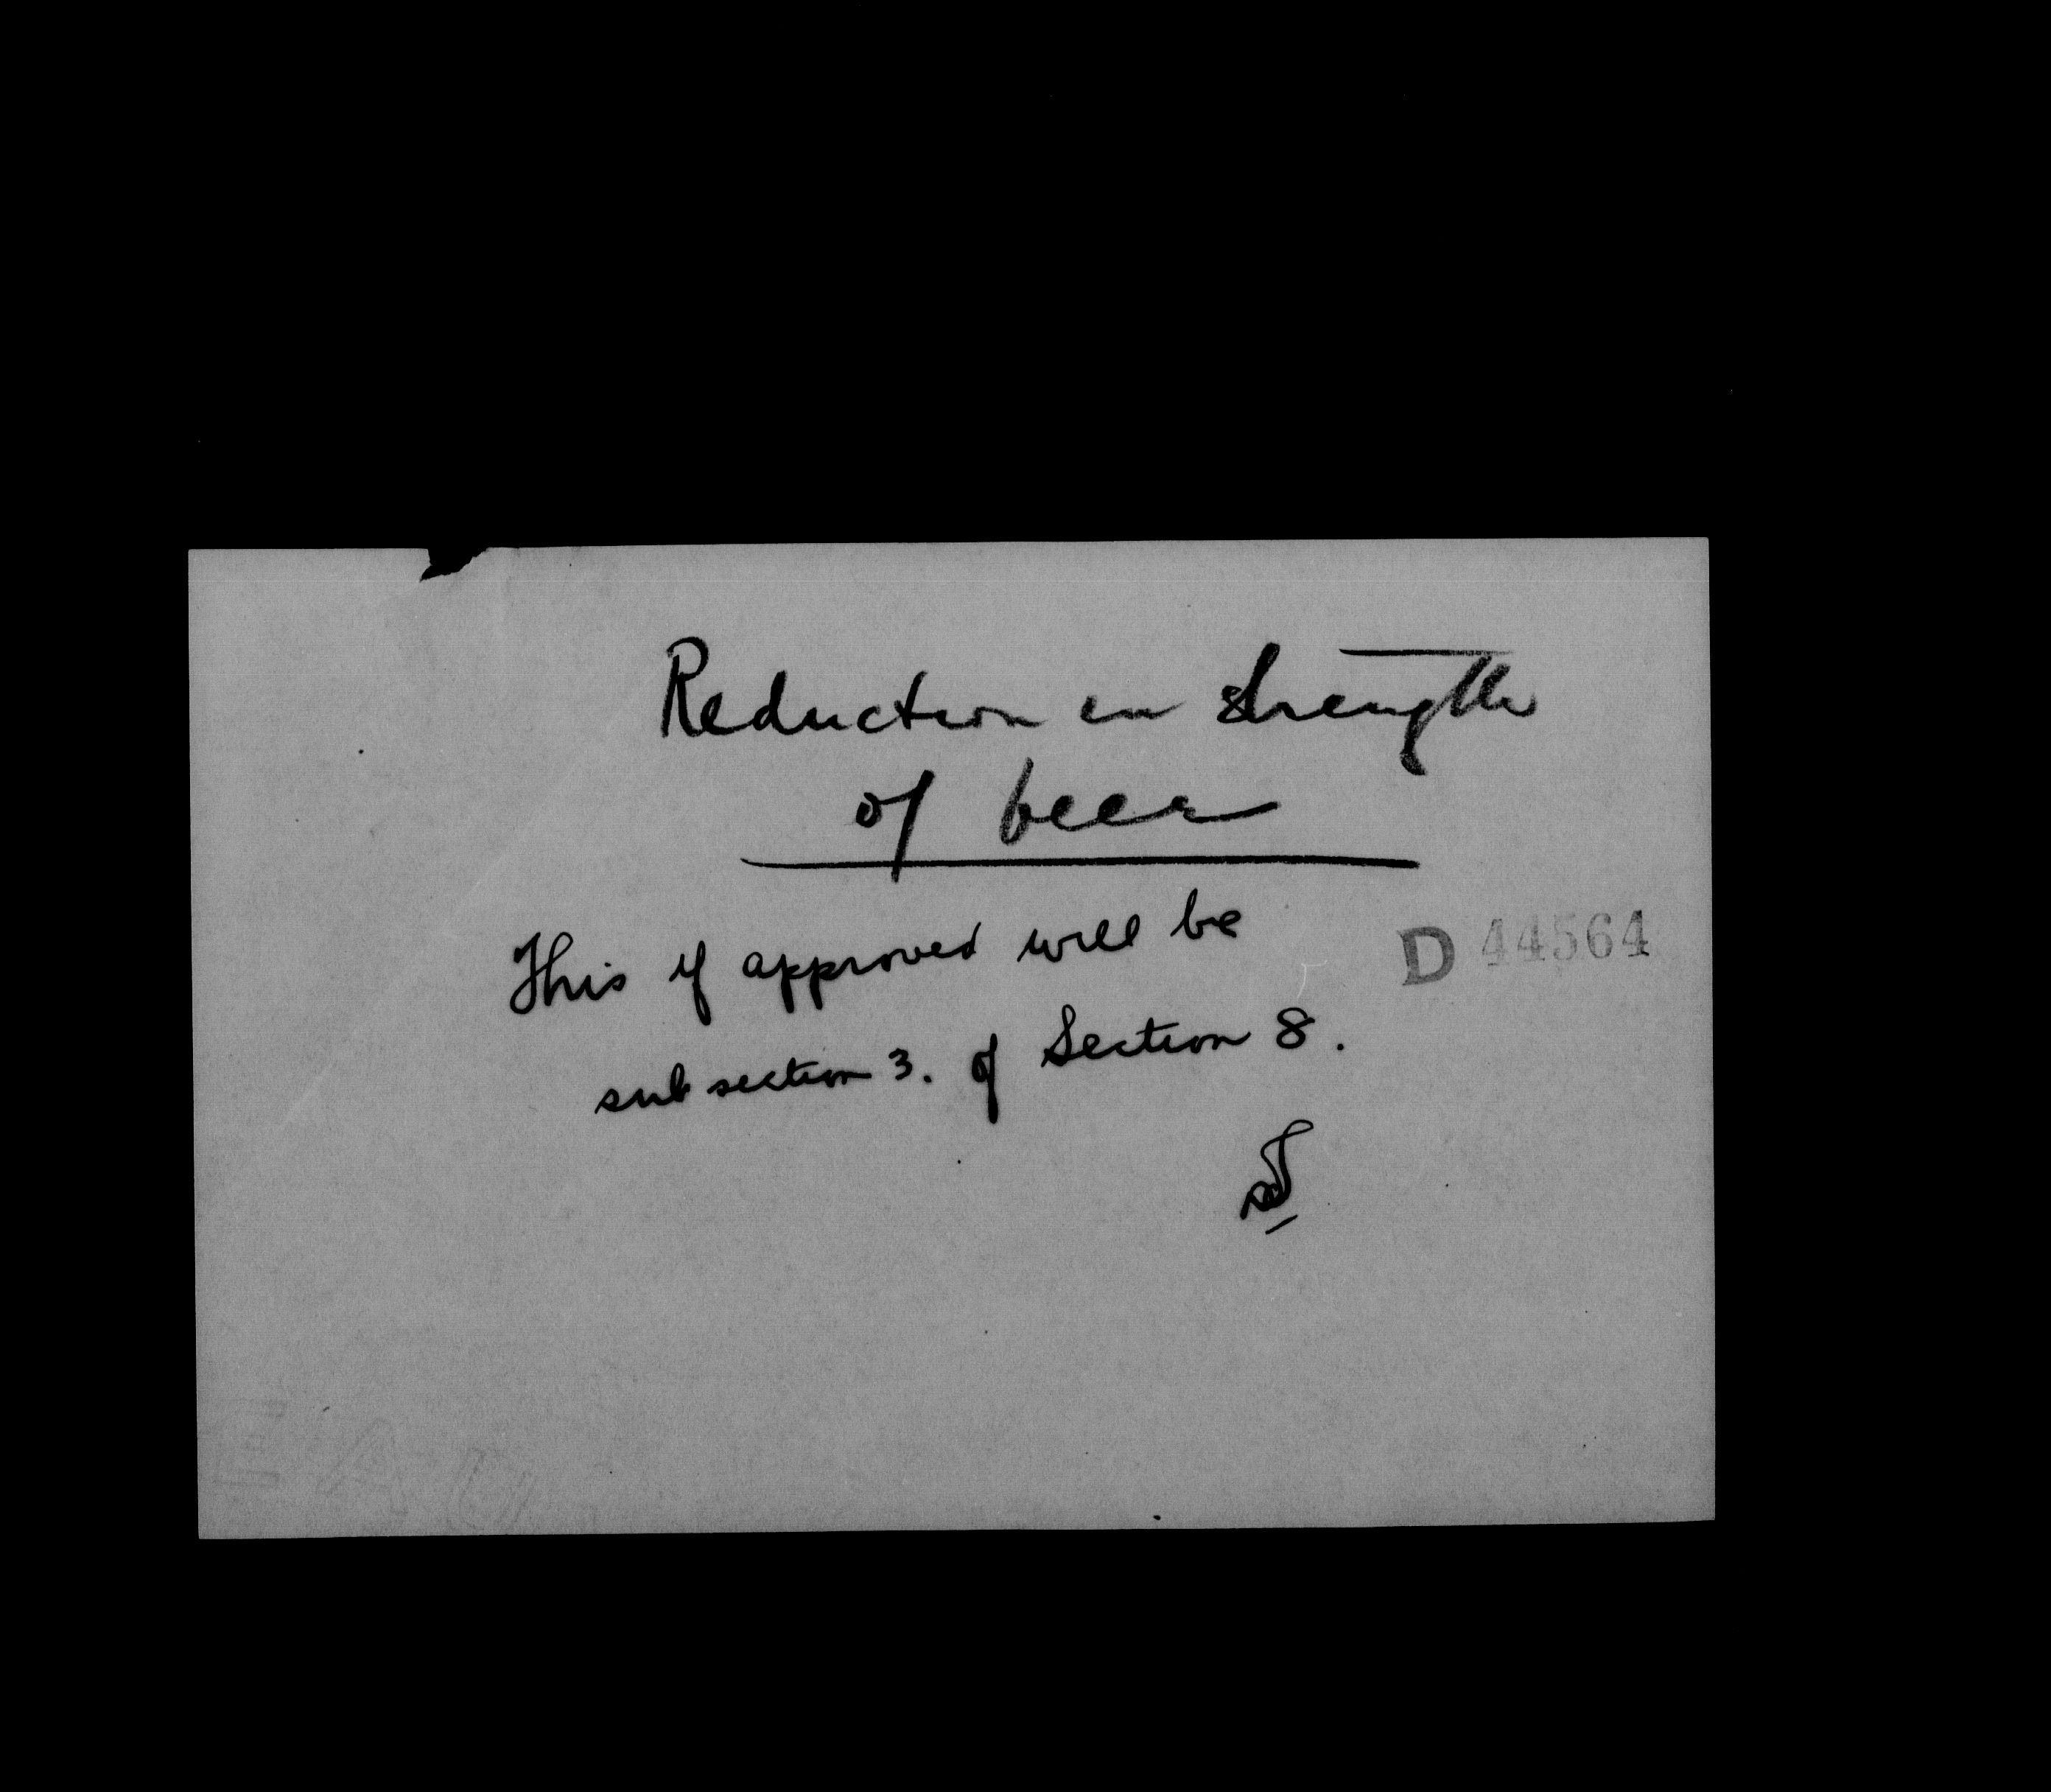 Reduction in strength
of beer
This if approved will be
D 44564
sub section 3. of Section 8.